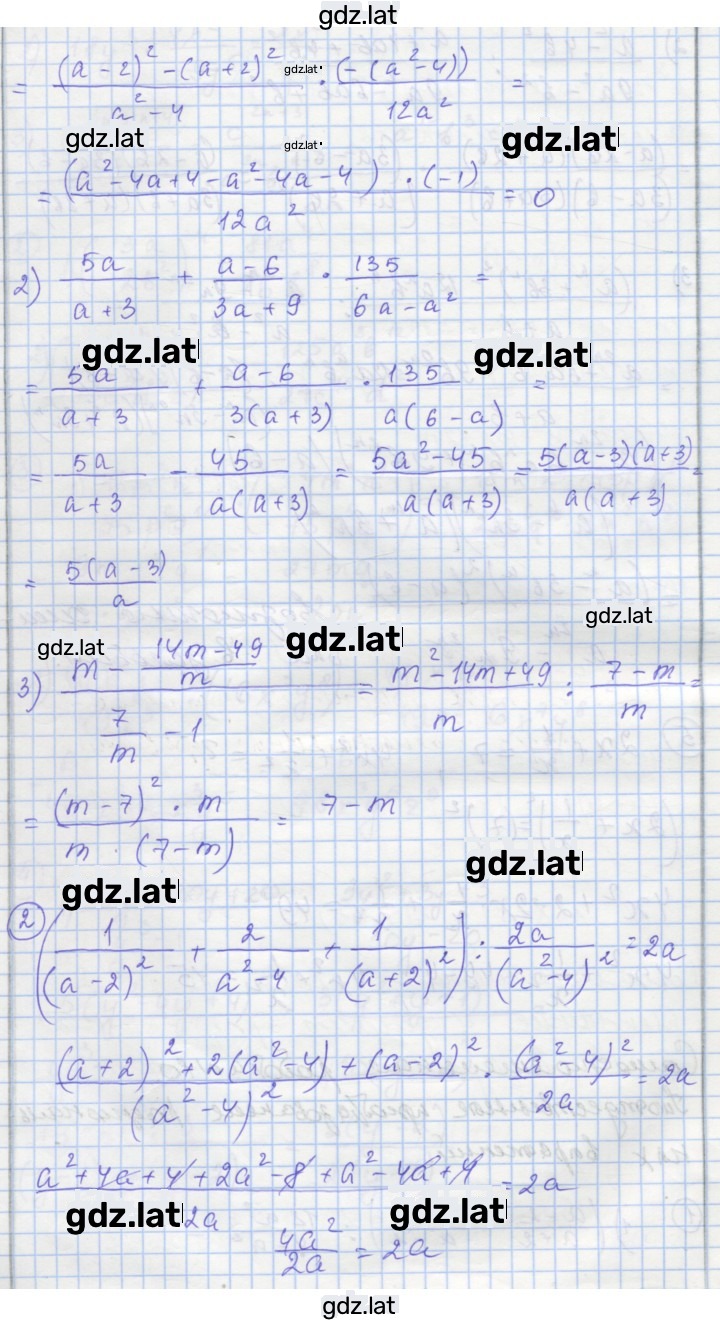 gdz.lat
= ((a-2)² - (a+2)²)/(a²-4) · (-(a²-4))/(12a²) =
gdz.lat
gdz.lat gdz.lat gdz.lat
= (a²-4a+4-a²-4a-4) · (-1)/(12a²) = 0
2) 5a/(a+3) + (a-6)/(3a+9) · 135/(6a-a²) =
gdz.lat gdz.lat
= 5a/(a+3) + (a-6)/(3(a+3)) · 135/(a(6-a)) =
= 5a/(a+3) - 45/(a(a+3)) = (5a²-45)/(a(a+3)) = 5(a-3)(a+3)/(a(a+3)) =
= 5(a-3)/a
gdz.lat gdz.lat gdz.lat
3) (m - (14m-49)/m)/(7/m - 1) = (m²-14m+49)/m : (7-m)/m =
= ((m-7)² · m)/(m · (7-m)) = 7-m
gdz.lat gdz.lat
2 (1/(a-2)² + 2/(a²-4) + 1/(a+2)²) : 2a/(a²-4)² = 2a
((a+2)² + 2(a²-4) + (a-2)²)/(a²-4)² · (a²-4)²/2a = 2a
(a²+4a+4+2a²-8+a²-4a+4)/2a = 2a
gdz.lat gdz.lat
4a²/2a = 2a
gdz.lat